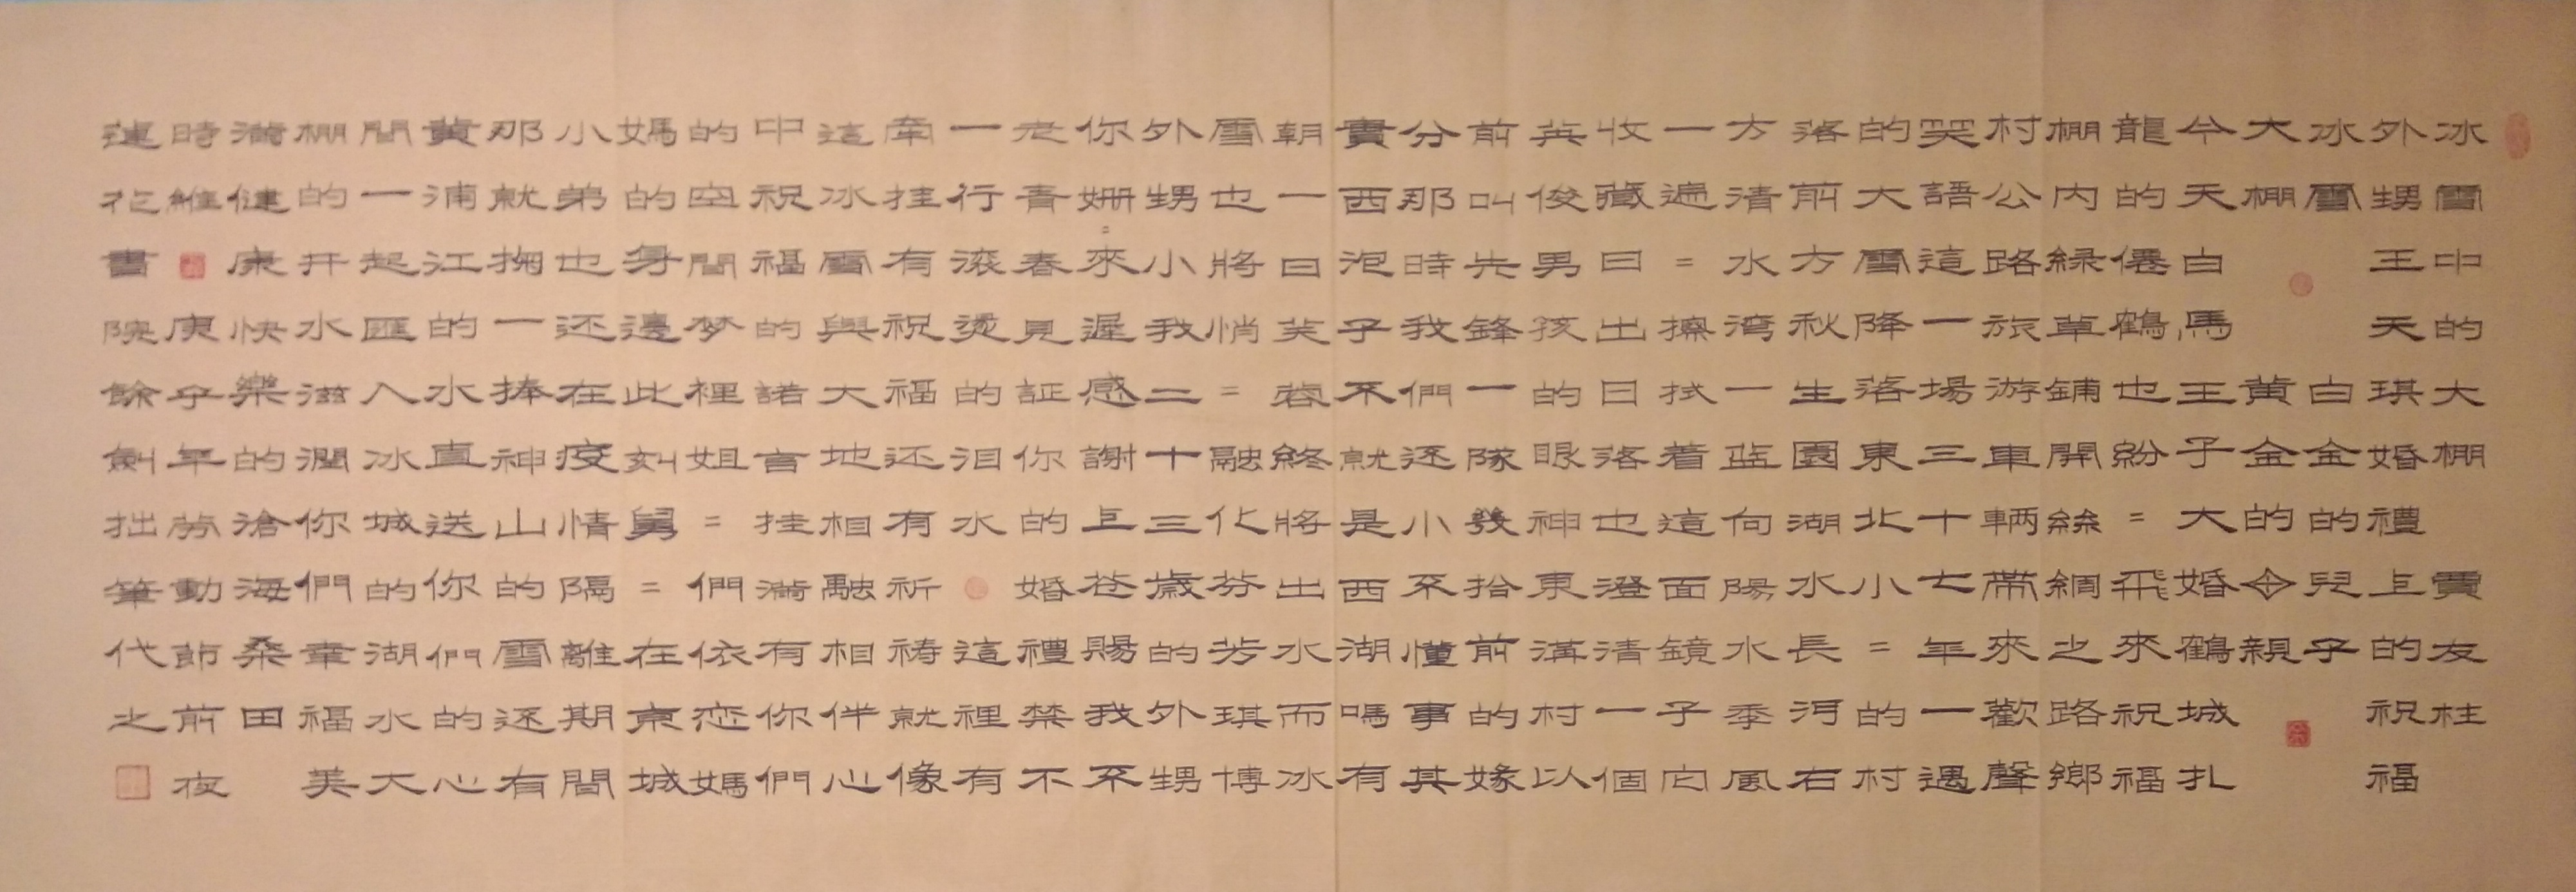 冰雪中的大棚賓友柱
外甥王天琪婚禮上的祝福
冰雪白金的兒子
大棚黄金的親
今天白馬王子大婚鶴城扎
龍的僊鶴也紛=飛來祝福
棚内緑草鋪開絲綢之路鄉
村公路旅游車輛帶來歡聲
笑語這一場三十七年一遇
的大雪降落東北小=的村
落前方秋生園湖水長河右
方清水湾一藍向陽水季風
一遍=擦拭着這面鏡子它
收藏日出日落也澄清一個
英俊男孩的眼神東溝村以
前叫共鋒一隊幾拾前的嫁
分那時我們还小不懂事其
貴西泡子不就是西湖嗎有
朝一日芙蓉終將出水而冰
雪也將悄=融化芬芳琪博
外甥小我二十三歲的外甥
你姍=來遲感謝上蒼賜我不
老青春見証你的婚禮禁不
一行滾燙的泪水這裡有
牽挂有祝福还有祈祷就像
這冰雪與大地相融相伴心
中祝福的諾言挂滿有你們
的空間梦裡姐=們依恋媽
媽的身邊此刻舅=在京城
小弟也还在疫情隔離期間
那就掬一捧神山的雪还有
黄浦江的水直送你們的心
間一起匯入冰城的湖水大
棚的井水滋潤你們幸福美
滿健康快樂的滄海桑田
時維庚子年勞動節前夜
蓮花書院餘劍拙筆代之